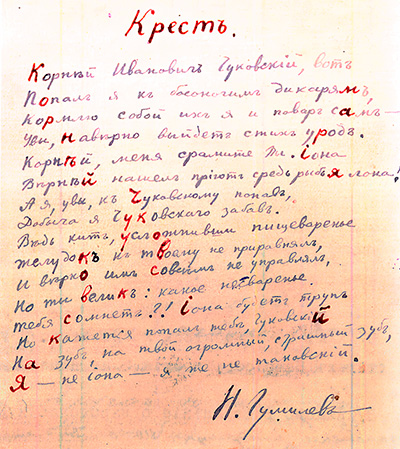 Крестъ.
Корнѣй Ивановичъ Чуковскій, вотъ
Попалъ я къ босоногимъ дикарямъ,
Кормлю собой ихъ я и поваръ самъ —
Увы, навѣрно выйдетъ стихъ уродъ.
Корнѣй, меня срамите Ты. Іона
Вѣрнѣй нашелъ пріютъ средь рыбья лона!
А я, увы, къ Чуковскому попавъ,
Добыча я Чуковскаго забавъ.
Вѣдь китъ, усложнивши пищеваренье
Желудокъ къ твоему не приравнялъ,
И вѣрно имъ совсѣмъ не управлялъ,
Но ты великъ: какое несваренье
тебя сомнетъ?! Іона будетъ трупъ
Но кажется попалъ тебѣ, Чуковскій
На зубъ, на твой огромный, страшный зубъ,
Я — не Іона — я же не таковскій.
Н. Гумилевъ